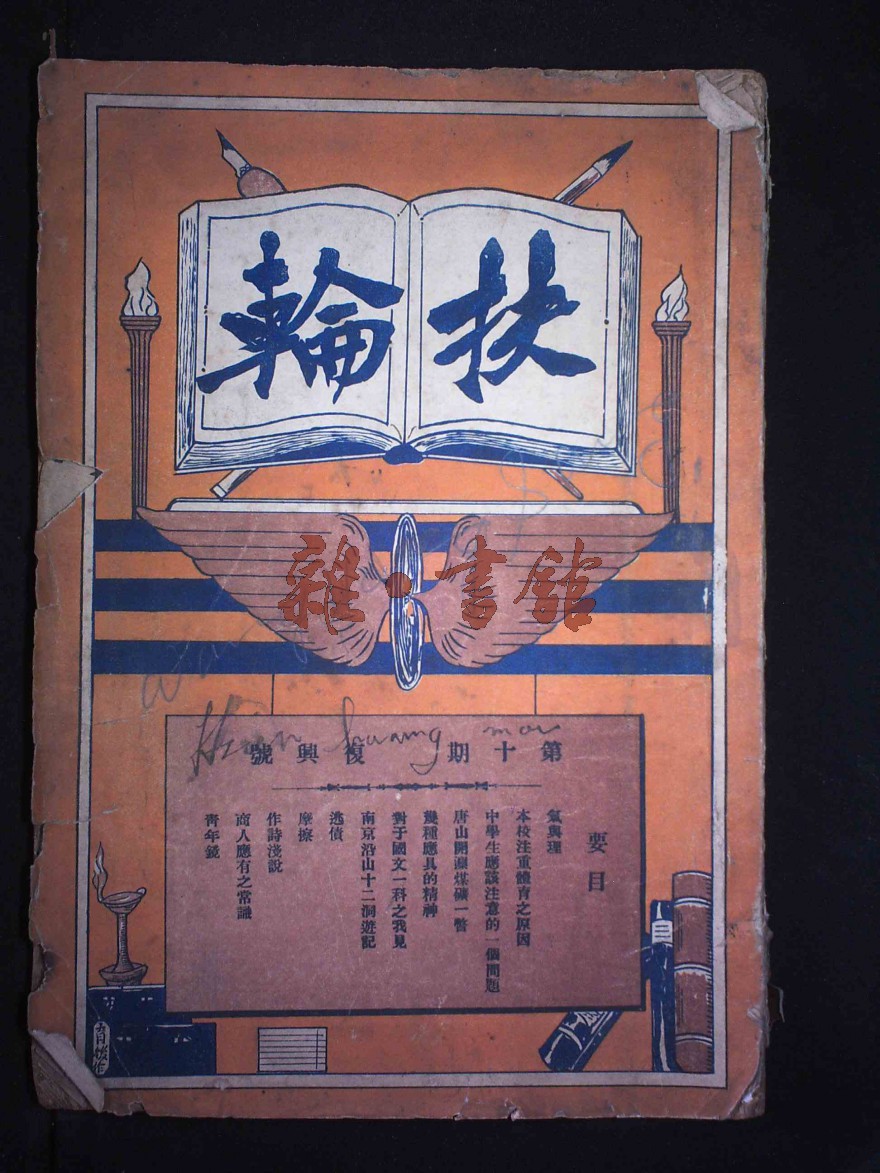 扶輪
雜·書館
第十期 復興號
要目
氣與理
本校注重體育之原因
中學生應該注意的一個問題
唐山開灤煤礦一瞥
幾種應具的精神
對于國文一科之我見
南京沿山十二洞遊記
逃債
摩擦
作詩淺說
商人應有之常識
青年鏡